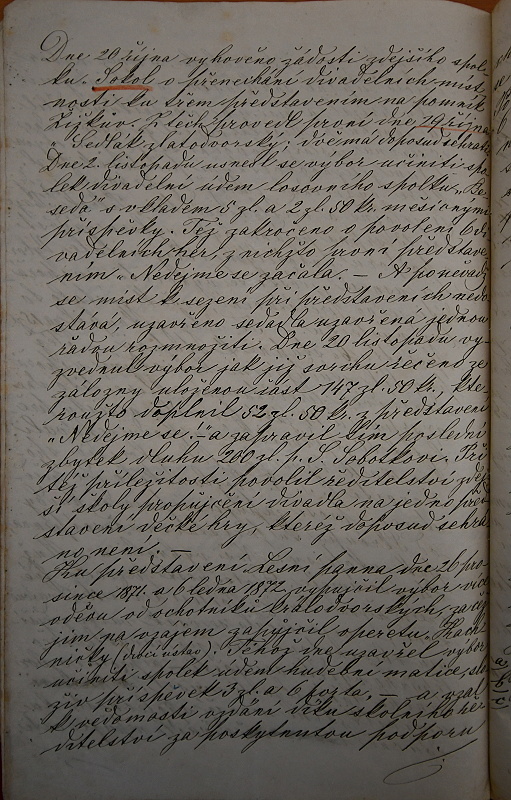 Dne 20 října vyhověno žádosti zdejšího spol-
ku „Sokol“ o přenechání divadelních míst-
ností ku třem představením na pomník
Žižkův. Z těch provedl první dne 19 října
„Sedlák zlatodvorský; dvě má doposud sehrát.
Dne 2. listopadu usnesl se výbor učiniti spo-
lek divadelní údem losovního spolku „Be-
seda“ s vkladem 5 zl. a 2 zl. 50 kr. měsíčními
příspěvky. Též zakročeno o povolení 6 di-
vadelních her, z nichžto první představe-
ním „Nedejme se“ začala. — A poněvadž
se míst k sezení při představeních nedo-
stává, uzavřeno sedadla uzavřená jednou
řadou rozmnožiti. Dne 20 listopadu vy-
zvednul výbor jak již svrchu řečeno ze
záložny uloženou část 147 zl. 50 kr., kte-
roužto doplnil 52 zl. 50 kr. z představení
„Nedejme se!“ a zapravil tím poslední
zbytek dluhu 200 zl. p. S. Sobotkovi. Při
též příležitosti povolil ředitelství zdej-
ší školy propůjčení divadla na jedno před-
stavení dětské hry, kteréž doposud sehrá-
no není. —
Ku představení Lesní panna dne 26 pro-
since 1871. a 6 ledna 1872 vypůjčil výbor více
oděvu od ochotníků královédvorských, začež
jim na vzájem zapůjčil operetu
ničky (dívčí ústav). Téhož dne uzavřel výbor
učiniti spolek údem hudební matice, slo-
živ příspěvek 3 zl. a 6 — a vzal
k vědomosti vzdání díku školního ře-
ditelství za poskytnutou podporu